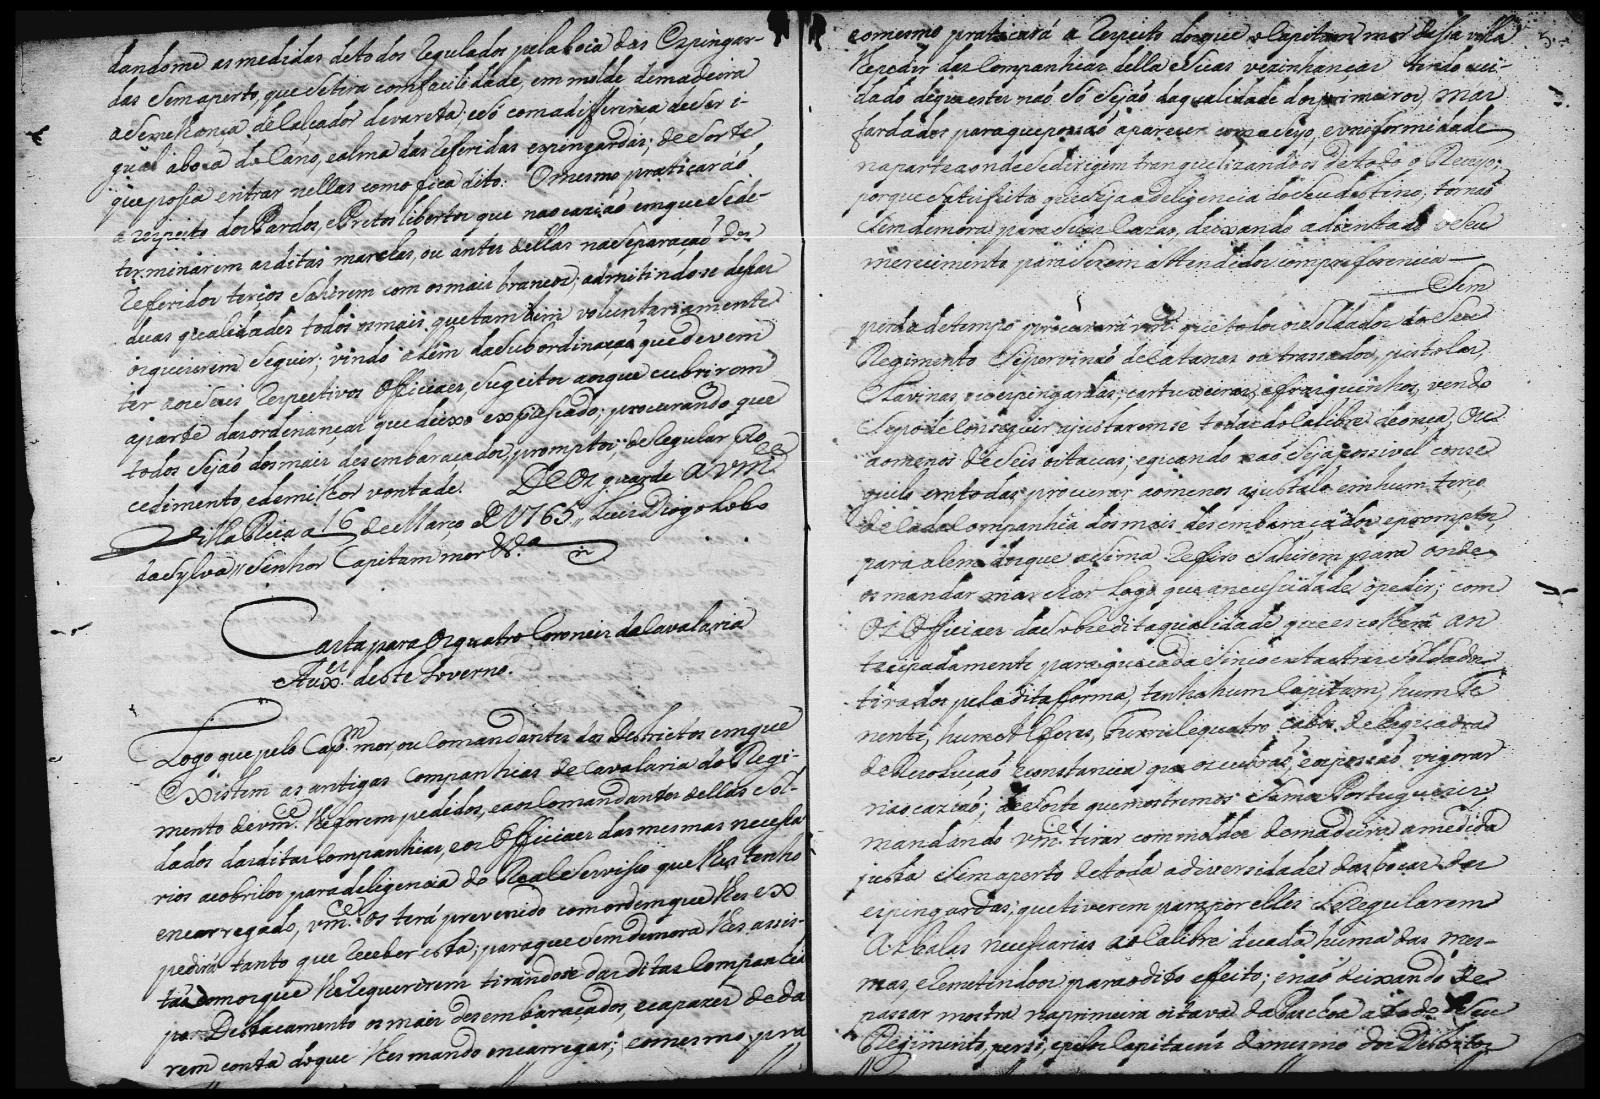 dandome as medidas detodos Regulados pelaboca das Espingar-
das Semaperto, que Setira comfacilidade, em molde demadeira
aSemelhança deLaçador devareta; esó comadifferença deSer i-
gual aboca do Cano, ealma das referidas espingardas; deSorte
queposa entrar nellas como fica dito. Omesmo praticará
a respeito dosPardos, ePretos libertos que naocaziaõ emque Sede-
terminarem asditas marchas, ou antes dellas naSeparaçaõ dos
Referidos terços Sahirem com osmais brancos; admitindose destas
duas qualidades todos osmais quetambem voluntariamente
oquizerem Seguir; vindo alem daSubordinaçaõ quedevem
ter aosSeus Respectivos Officiaes, Sugeitos aosque cubrirem
aparte dasordenanças que deixo expressado; procurando que
todos Sejaõ dosmais desembaraçados, promptos, deRegular pro
cedimento, edemilhor vontade. DEos guarde a vm.ce
Villa Rica a 16 de Março de 1765 // Luis Diogo Lobo
daSylva // Senhor Capitam mor &.a
Carta para Os quatro Coroneis daCavalaria
Aux.es deste Governo.
Logo que pelo Cap.m mor, ou Comandantes dos Destrictos emque
Existem as antigas Companhias de Cavalaria do Regi-
mento de vm.ce lheforem pedidos, eaos Comandantes dellas Sol-
dados dasditas Companhias, eos Officiaes das mesmas necessa
rios acobrilos para deligencia do RealServisso que lhes tenho
encarregado, vm.ce os terá prevenido comordem que lhes ex
pedirá tanto que receber esta; paraque Semdemora lhes assis-
taõ comosque lheRequererem tirandose das ditas Companhias
p.a Destacamento os mais desembaraçados, ecapazes de da
rem conta doque lhes mando encarregar; eomesmo pra
eomesmo praticará a Respeito dosque o Capitam mor desta villa
lhepedir das Companhias della eSuas vezinhanças tendo cui-
dado deque estes naõ Só Sejaõ daqualidade dosprimeiros, mas
fardados paraquepossaõ aparecer comaSeyo, euniformidade
naparte aonde Sedirigem tranquelizandoos detodo o Receyo;
porque Satisfeita queSeja adeligencia doSeu destino, tornaõ
Semdemora para Suas Cazas, deixando adiantado oSeu
merecimento para Serem attendidos compreferencia
Sem
perda detempo procurará vm.ce que todos osSoldados do Seu
Regimento Seporvinaõ deCatanas ou trassados, pistolas,
Clavinas, ou espingardas; cartuxeiras, efrasquinhos, vendo
Sepode Conseguir ajustaremse todas doCalibre deonça, ou
aomenos de Seis oitavas; equando naõ Seja possivel conse
guilo emtodas, procurar aomenos ajustalo emhum terço
de Cada Companhia dos mais desembaraçados, epromptos
para alem dosque aSima Refiro Sahirem para onde
os mandar marchar Logo que anecessidade opedir; com
Os Officiaes da Sobreditaqualidade queescolherá an
tecipadamente para que cada Sincoenta etres Soldados
tirados pela dita fforma, tenha hum Capitam, hum Te
nente, hum Alferes, Furriel e quatro cabos de Esquadra
de Resoluçaõ, econstancia que os cubraõ, epossaõ vigorar
naocaziaõ; deSorte que mostremos Somos Portuguezes,
mandando vm.ce tirar com moldes demadeira a medida
justa Semaperto detoda adiversidade das bocas das
espingardas, que tiverem para por elles SeRegularem
As balas necessarias ao Calibre decada huma das mes-
mas, eRemetindoos para odito effeito; enaõ deixando de
passar mostra naprimeira oitava da Pascoa atodo o Seu
Regimento, persi, epelos Capitaens domesmo dos Destritos